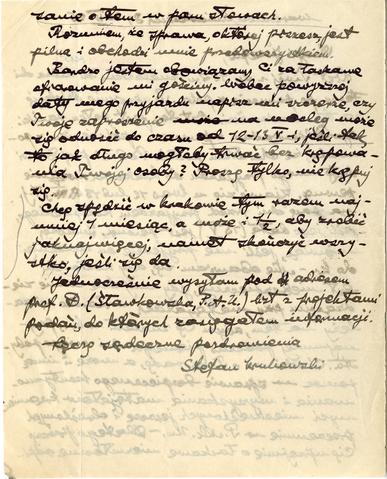 zanie o tem w paru słowach.
Rozumiem, że sprawa, o której piszesz, jest
pilna i obchodzi mnie przedewszystkiem.
Bardzo jestem obowiązany Ci za łaskawe
ofiarowanie mi gościny. Wobec powyższej
daty mego przyjazdu napisz mi wreszcie, czy
Twoje zaproszenie na nocleg może
się odnosić do czasu od 12-15 V i, jeśli tak,
to jak długo mogłoby trwać bez krępowa-
nia Twojej osoby? Proszę tylko, nie krępuj
się.
Chcę spędzić w Krakowie tym razem naj-
mniej 1 miesiąc, a może i 1½, aby zrobić
jaknajwięcej, nawet skończyć wszy-
stko, jeśli się da.
Jednocześnie wysyłam pod adresem
prof. D. (Sławkowska, P.A.U.) list z projektami
podań, do których zasięgałem informacji.
Łączę serdeczne pozdrowienia
Stefan Krukowski